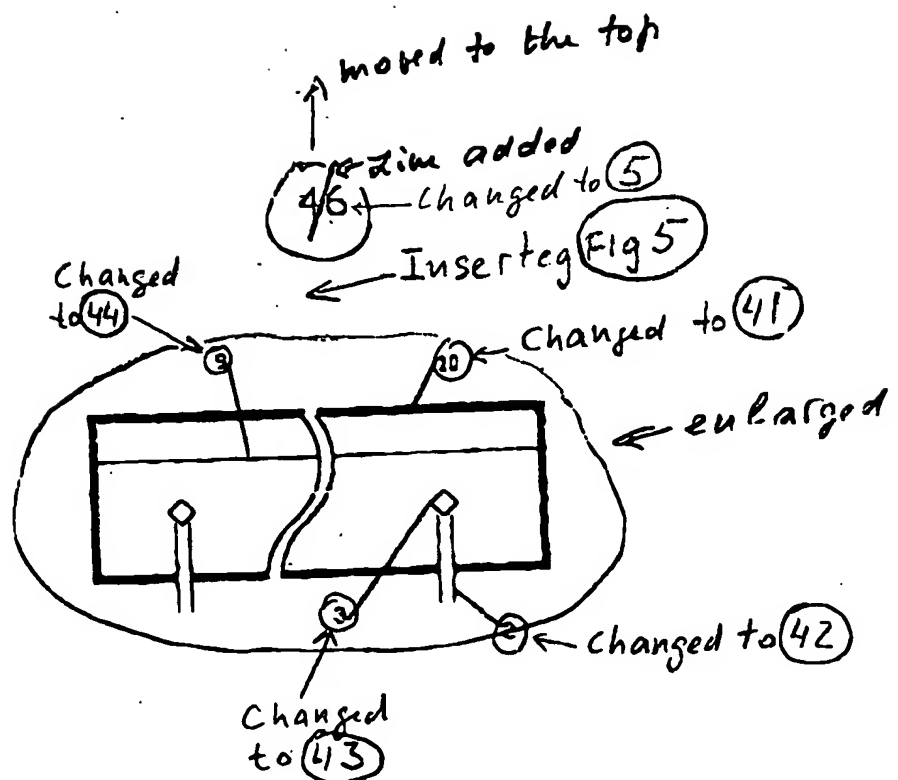 moved to the top
Line added
46
Changed to 5
Inserteg Fig 5
Changed
to 44
9
10
Changed to 41
enlarged
3
2
Changed to 42
Changed
to 43